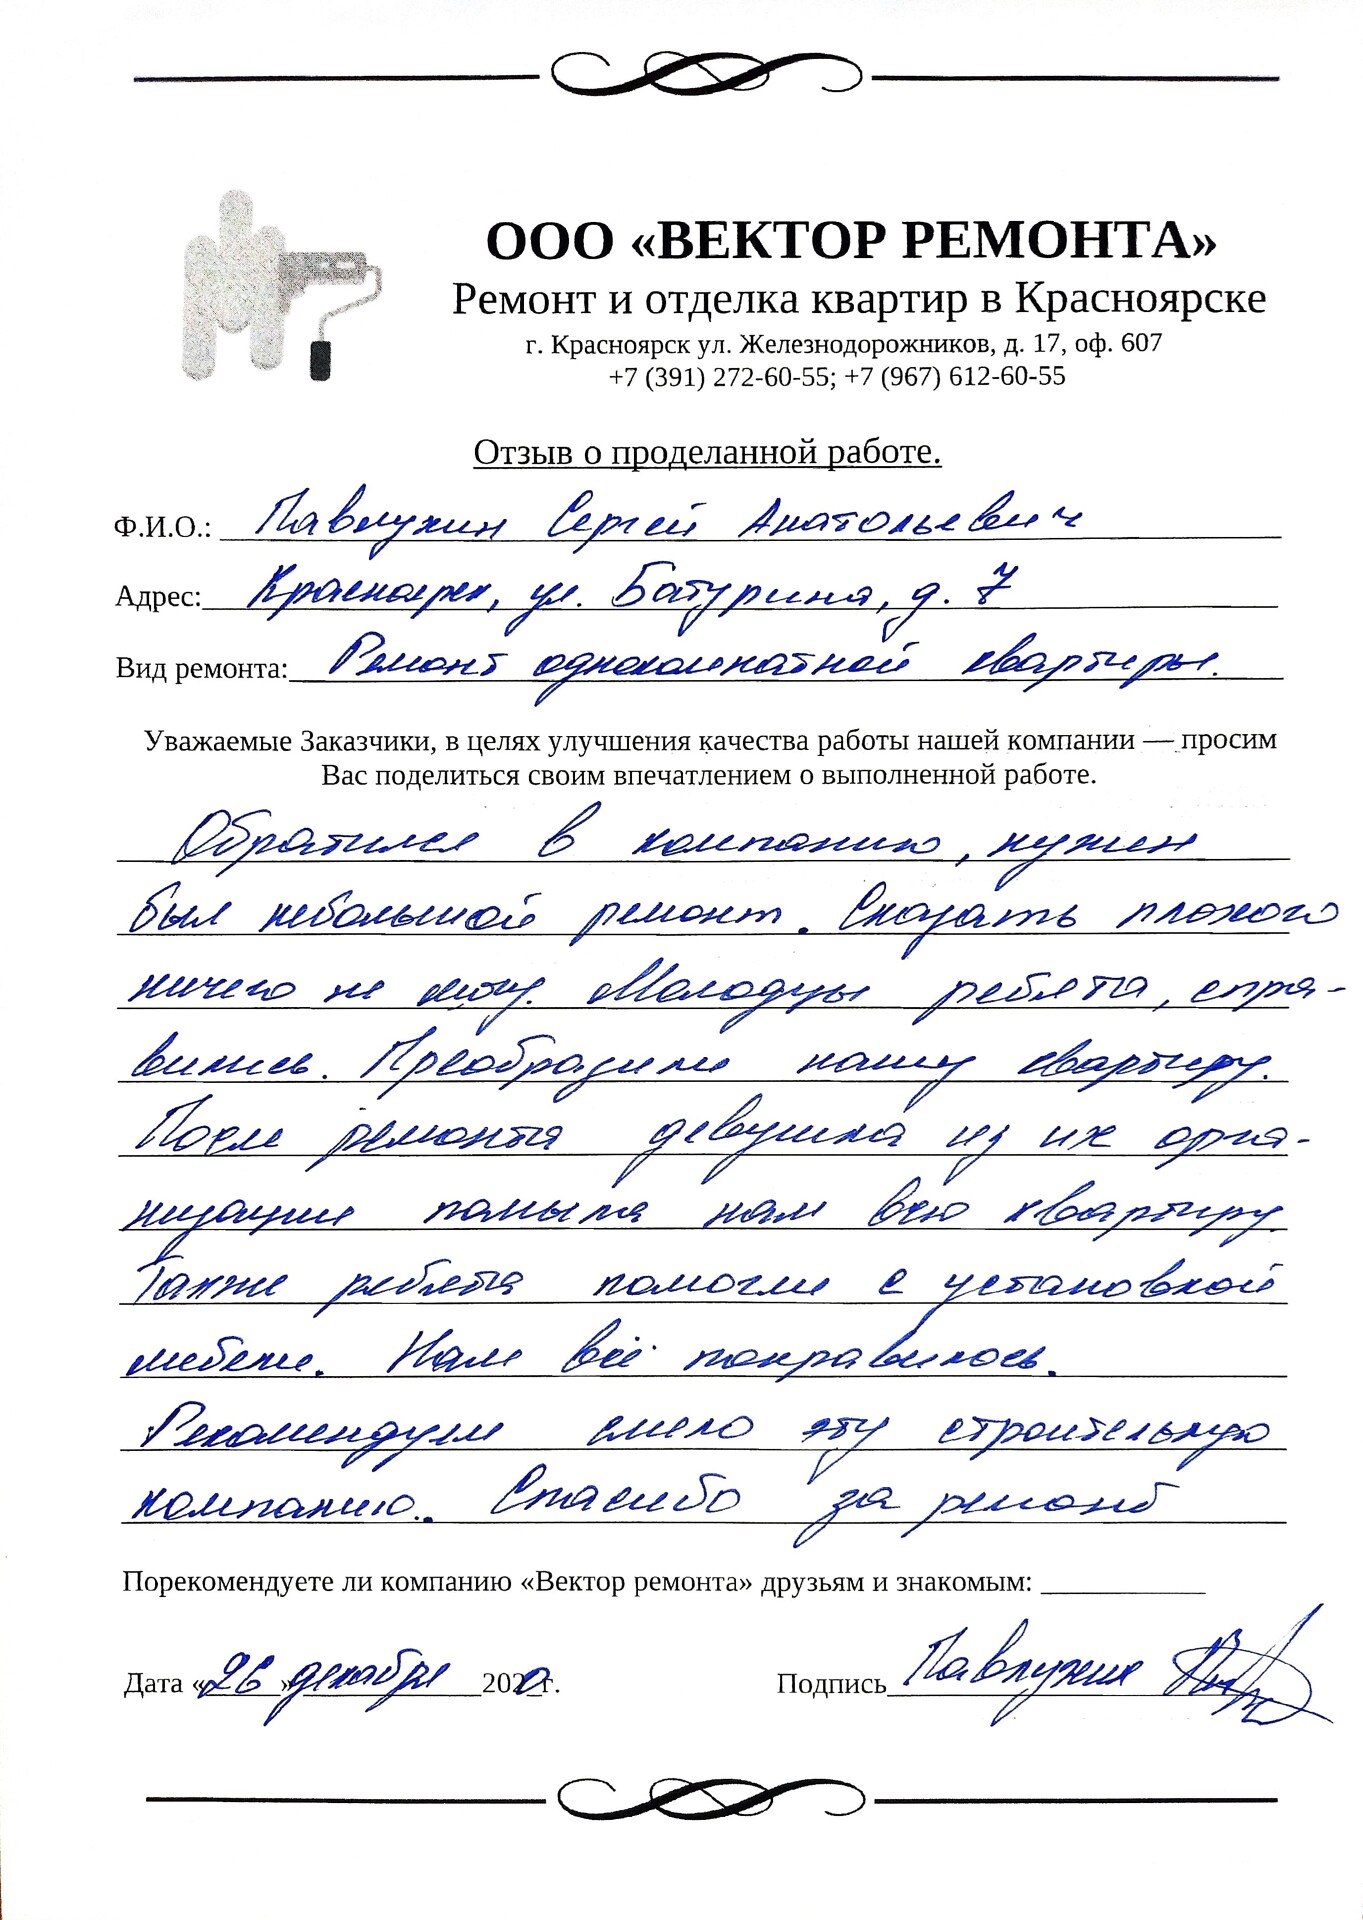 ООО «ВЕКТОР РЕМОНТА»
Ремонт и отделка квартир в Красноярске
г. Красноярск ул. Железнодорожников, д. 17, оф. 607
+7 (391) 272-60-55; +7 (967) 612-60-55
Отзыв о проделанной работе.
Ф.И.О.: Павлухин Сергей Анатольевич
Адрес: Красноярск, ул. Батурина, д. 7
Вид ремонта: Ремонт однокомнатной квартиры.
Уважаемые Заказчики, в целях улучшения качества работы нашей компании — просим
Вас поделиться своим впечатлением о выполненной работе.
Обратился в компанию, нужен
был небольшой ремонт. Сказать плохого
ничего не могу. Молодцы ребята, спра-
вились. Преобразили нашу квартиру.
После ремонта девушка из их орга-
низации помыла нам всю квартиру.
Также ребята помогли с установкой
мебели. Нам всё понравилось.
Рекомендуем смело эту строительную
компанию.. Спасибо за ремонт
Порекомендуете ли компанию «Вектор ремонта» друзьям и знакомым:
Дата «26» декабря 2020г. Подпись Павлухин